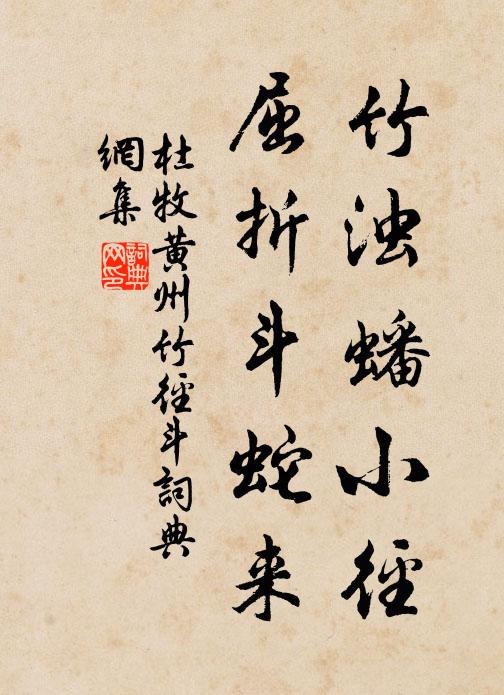 竹浊蟠小径
屈折斗蛇来
杜牧黄州竹径斗詞典
網集
詞典网印